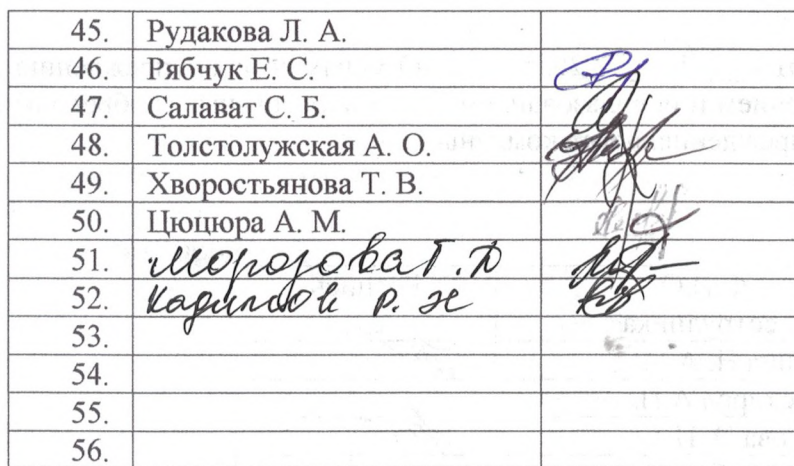 45. Рудакова Л. А.
46. Рябчук Е. С.
47. Салават С. Б.
48. Толстолужская А. О.
49. Хворостьянова Т. В.
50. Цюцюра А. М.
51. Морозова Т. Д
52. Р. Ж
53.
54.
55.
56.